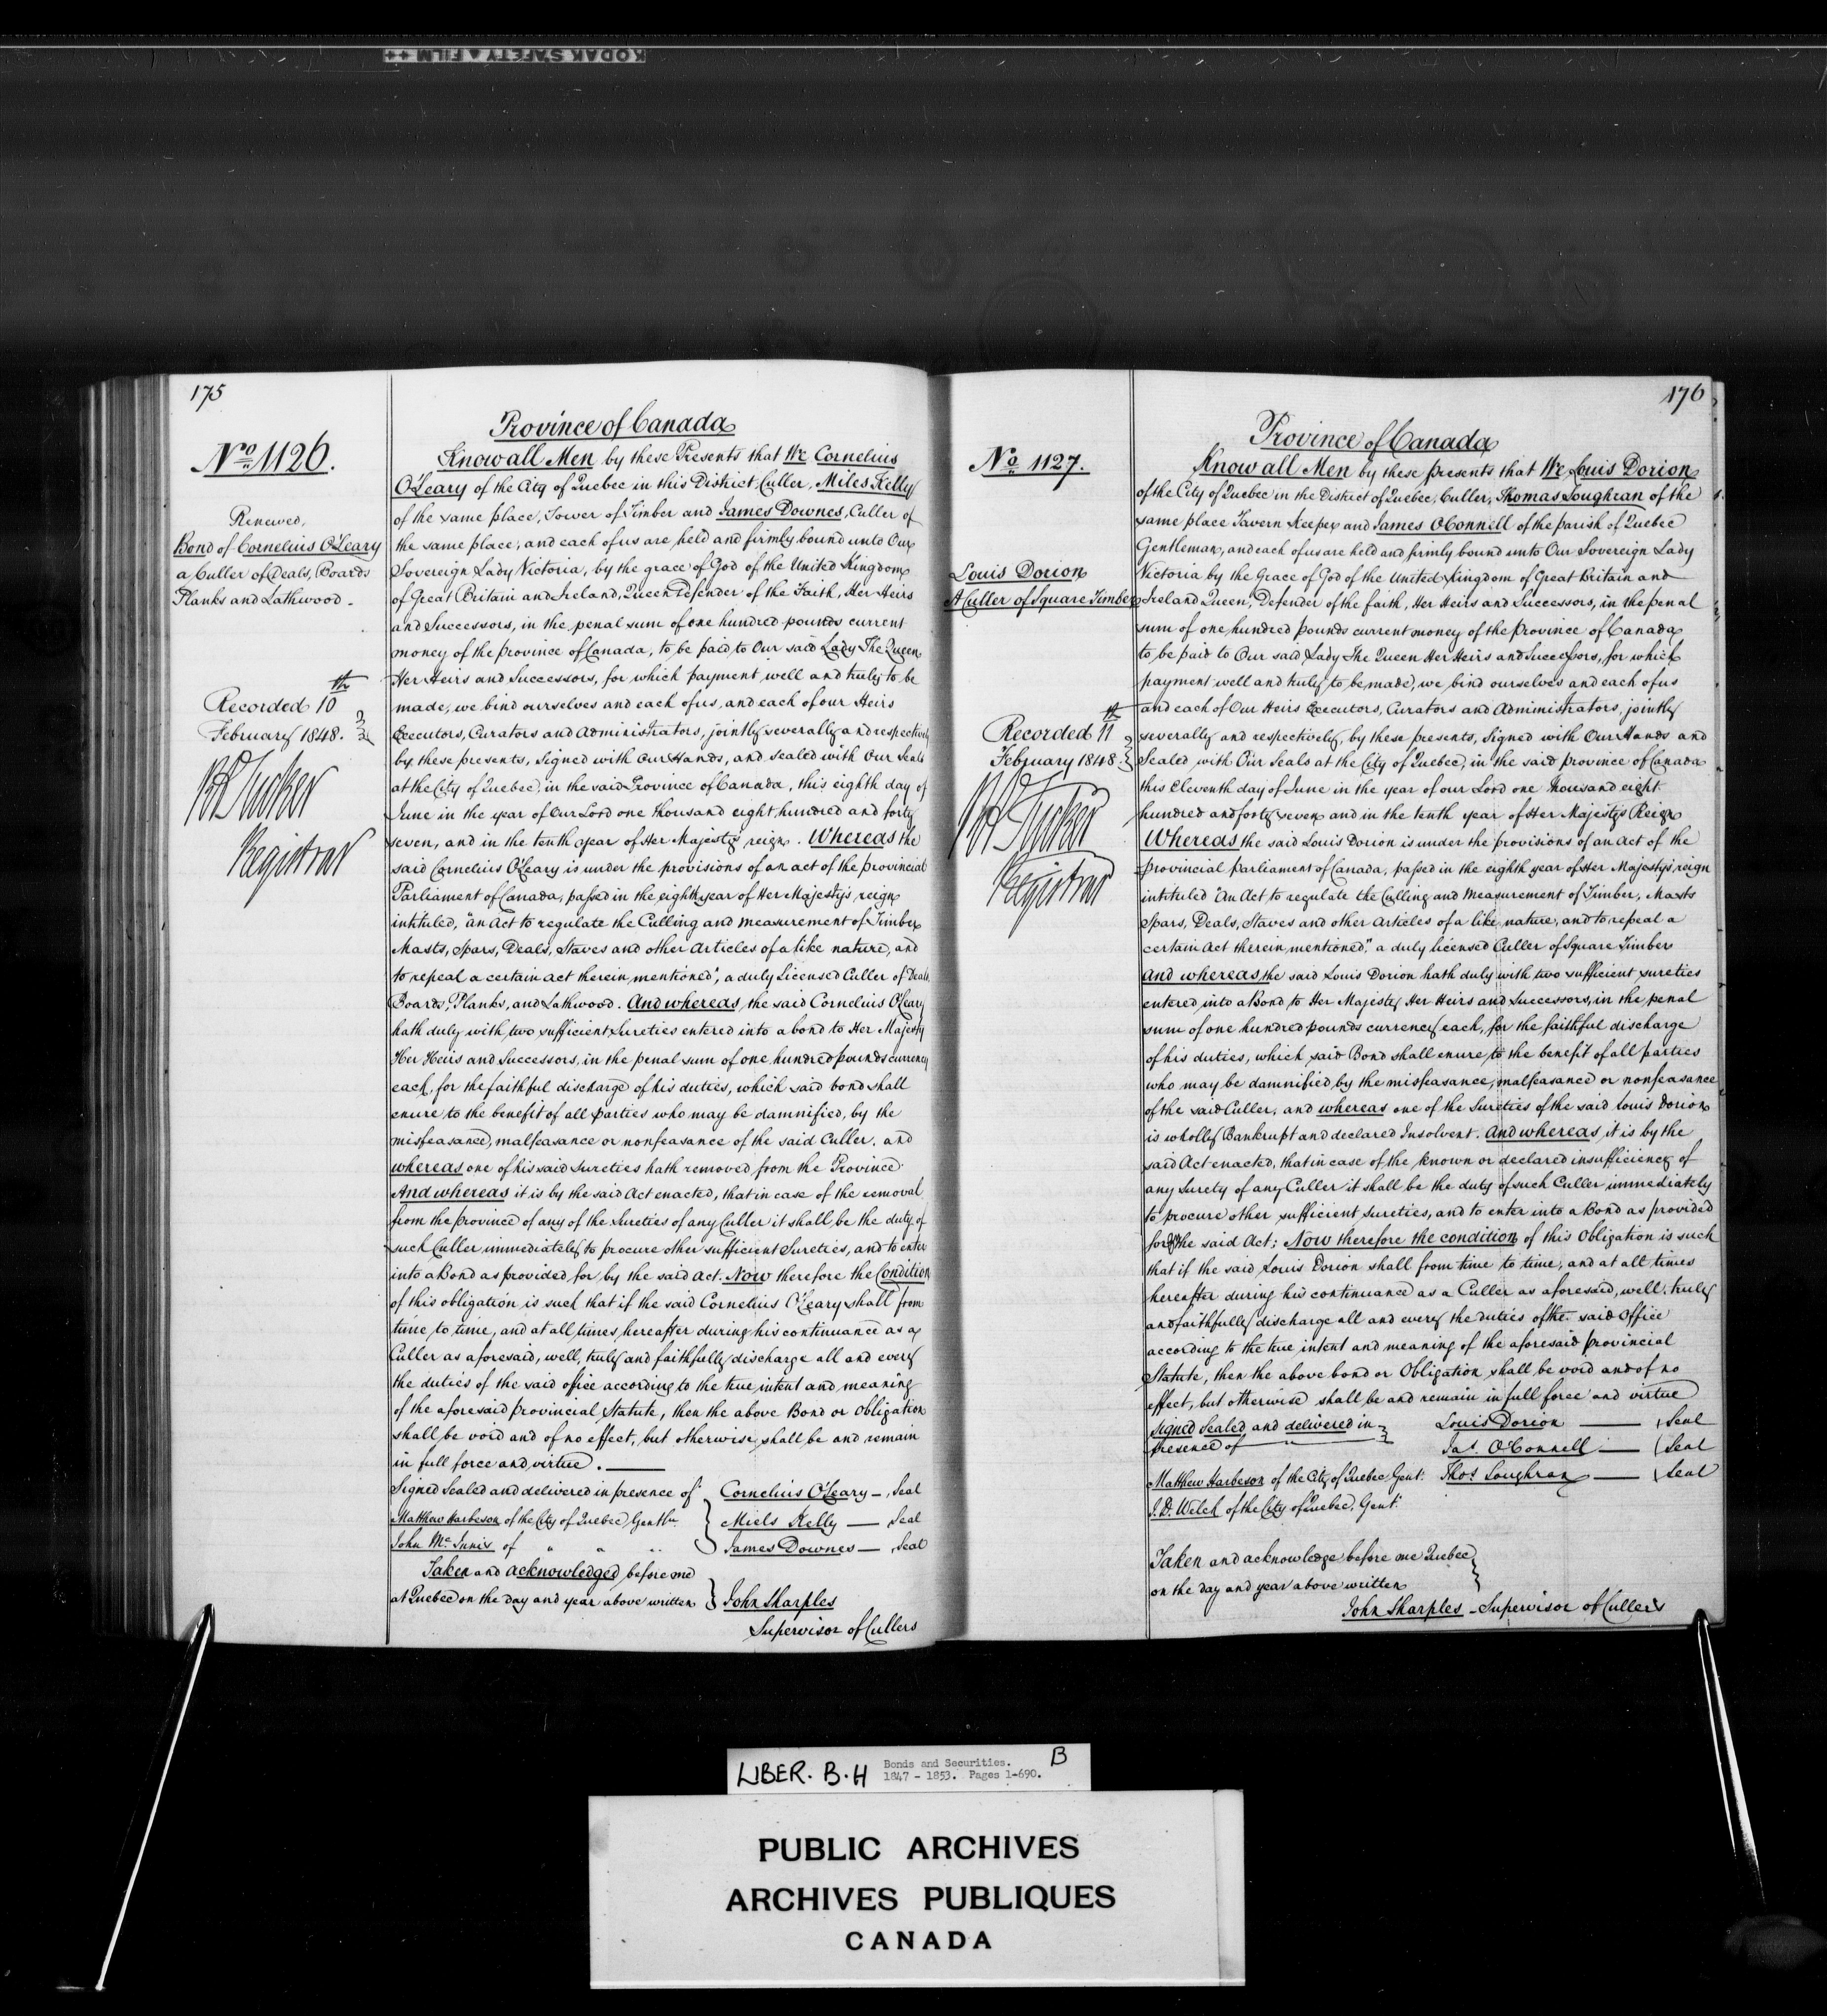 KODAK SAFETY FILM ++
175
No 1126.
Renewed,
Bond of Cornelius O'Leary
a Culler of Deals, Boards
Planks and Lathwood.
Recorded 10th
February 1848.
Registrar
Province of Canada
Know all Men by these Presents that We Cornelius
O'Leary of the City of Quebec in this District, Culler, Miles Kelly
of the same place, Tower of Timber and James Downes, Culler of
the same place, and each of us are held and firmly bound unto Our
Sovereign Lady Victoria, by the grace of God of the United Kingdom
of Great Britain and Ireland, Queen Defender of the Faith, Her Heirs
and Successors, in the penal sum of one hundred pounds current
money of the province of Canada, to be paid to Our said Lady The Queen
Her Heirs and Successors, for which payment well and truly to be
made, we bind ourselves and each of us, and each of our Heirs
Executors, Curators and Administrators, jointly severally and respectively
by these presents, Signed with our Hands, and sealed with Our Seals
at the City of Quebec, in the said Province of Canada, this eighth day of
June in the year of Our Lord one thousand eight hundred and forty
seven, and in the tenth year of Her Majesty's reign. Whereas the
said Cornelius O'Leary is under the provisions of an act of the provincial
Parliament of Canada, passed in the eighth year of Her Majesty's reign
intituled, "an Act to regulate the Culling and measurement of Timber
Masts, Spars, Deals, Staves and other articles of a like nature, and
to repeal a certain act therein mentioned", a duly Licensed Culler of Deals
Boards, Planks, and Lathwood. And whereas, the said Cornelius O'Leary
hath duly with two sufficient Sureties entered into a bond to Her Majesty
Her Heirs and Successors, in the penal sum of one hundred pounds currency
each, for the faithful discharge of his duties, which said bond shall
enure to the benefit of all parties who may be damnified, by the
misfeasance, malfeasance or nonfeasance of the said Culler, and
whereas one of his said Sureties hath removed from the Province.
And whereas it is by the said Act enacted, that in case of the removal
from the province of any of the Sureties of any Culler it shall be the duty of
such Culler immediately to procure other sufficient Sureties, and to enter
into a Bond as provided for by the said act. Now therefore the Condition
of this obligation is such that if the said Cornelius O'Leary shall from
time to time, and at all times hereafter during his continuance as a
Culler as aforesaid, well, truly and faithfully discharge all and every
the duties of the said office according to the true intent and meaning
of the aforesaid provincial Statute, then the above Bond or obligation
shall be void and of no effect, but otherwise, shall be and remain
in full force and virtue.
Signed Sealed and delivered in presence of Cornelius O'Leary — Seal
Matthew Harbeson of the City of Quebec, Gentln. Miels Kelly — Seal
John McInnis of " " " James Downes — Seal
Taken and acknowledged before me
at Quebec on the day and year above written John Sharples
Supervisor of Cullers
176
No 1127.
Louis Dorion
A Culler of Square Timber
Recorded 11th
February 1848
Registrar
Province of Canada
Know all Men by these presents that We Louis Dorion
of the City of Quebec in the District of Quebec, Culler, Thomas Loughran of the
same place Tavern Keeper and James O'Connell of the parish of Quebec
Gentleman, and each of us are held and firmly bound unto Our Sovereign Lady
Victoria by the Grace of God of the United Kingdom of Great Britain and
Ireland Queen, Defender of the faith, Her Heirs and Successors, in the penal
sum of one hundred pounds current money of the Province of Canada
to be paid to Our said Lady The Queen Her Heirs and Successors, for which
payment well and truly to be made, we bind ourselves and each of us
and each of Our Heirs Executors, Curators and Administrators, jointly
severally and respectively, by these presents, Signed with Our Hands and
Sealed with Our Seals at the City of Quebec, in the said province of Canada
this Eleventh day of June in the year of our Lord one thousand eight
hundred and forty seven and in the tenth year of Her Majestys Reign
Whereas the said Louis Dorion is under the provisions of an act of the
provincial Parliament of Canada, passed in the eighth year of Her Majesty's reign
intituled "An Act to regulate the Culling and Measurement of Timber, Masts
Spars, Deals, Staves and other articles of a like nature, and to repeal a
certain Act therein mentioned," a duly licensed Culler of Square Timber
And whereas the said Louis Dorion hath duly with two sufficient sureties
entered into a Bond to Her Majesty Her Heirs and Successors, in the penal
sum of one hundred pounds currency each, for the faithful discharge
of his duties, which said Bond shall enure to the benefit of all parties
who may be damnified by the misfeasance, malfeasance or nonfeasance
of the said Culler, and whereas one of the Sureties of the said Louis Dorion
is wholly Bankrupt and declared Insolvent. And whereas it is by the
said Act enacted, that in case of the known or declared insufficiency of
any Surety of any Culler it shall be the duty of such Culler immediately
to procure other sufficient Sureties, and to enter into a Bond as provided
for the said Act; Now therefore the condition of this Obligation is such
that if the said Louis Dorion shall from time to time, and at all times
hereafter during his continuance as a Culler as aforesaid, well, truly
and faithfully discharge all and every the duties of the said Office
according to the true intent and meaning of the aforesaid provincial
Statute, then the above bond or Obligation shall be void and of no
effect, but otherwise shall be and remain in full force and virtue
Signed Sealed and delivered in Louis Dorion — Seal
presence of Jas. O'Connell — Seal
Matthew Harbeson of the City of Quebec, Gent: Thos Loughran — Seal
J. D. Welch of the City of Quebec, Gent:
Taken and acknowledge before me Quebec
on the day and year above written
John Sharples - Supervisor of Cullers
LIBER. B.H Bonds and Securities. B
1847 - 1853. Pages 1-690.
PUBLIC ARCHIVES
ARCHIVES PUBLIQUES
CANADA